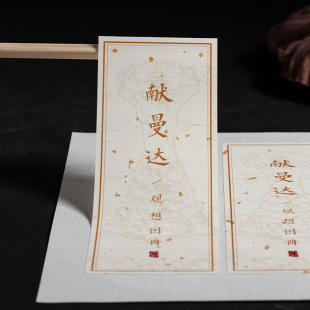 献曼达
/观想图册
献曼达
/观想图册